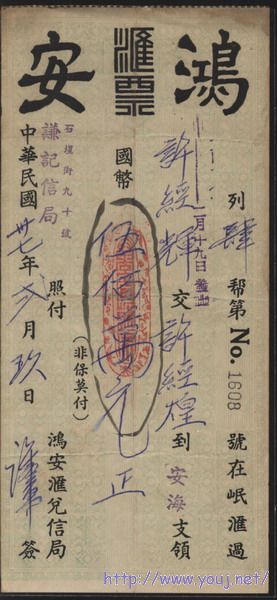 鴻安
滙票
列肆幇第No.1608號在岷滙過
月十九日
許經輝交許經煌到安海支領
國幣伍佰萬元正
照付
(非保莫付)
鴻安滙兌信局
石埕街九十號
謙記信局
中華民國卅七年弍月玖日
簽
http://www.youj.net/